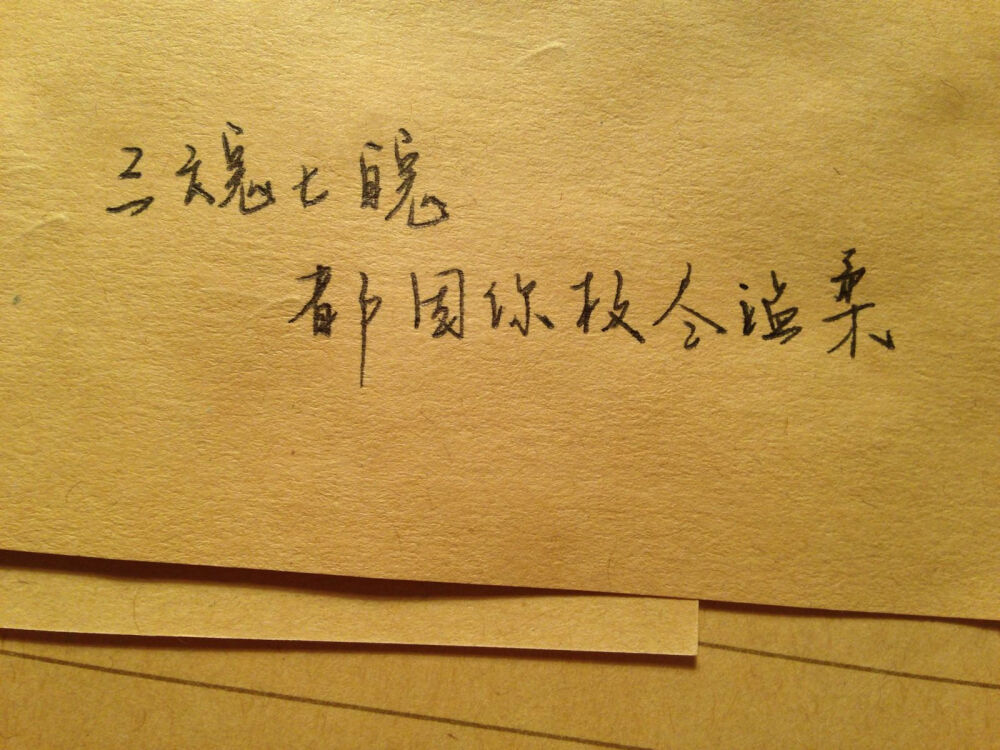 三魂七魄
都因你极尽温柔